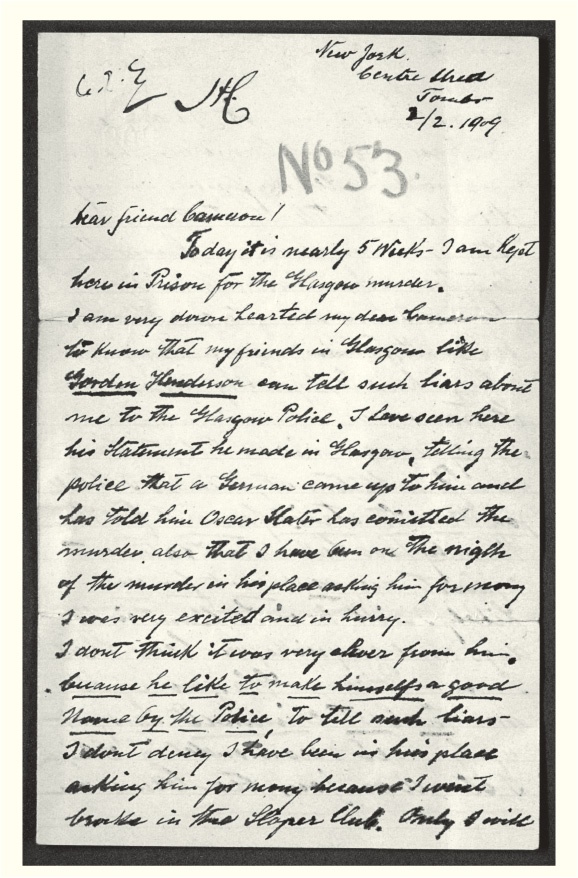 New York.
Centre Street
Tombs
2/2. 1909.
No 53.
Dear friend Cameron!
Today it is nearly 5 Weeks - I am Kept
here in Prison for the Glasgow murder.
I am very down hearted my dear Cameron
to know that my friends in Glasgow like
Gorden Henderson can tell such liars about
me to the Glasgow Police. I have seen here
his Statement he made in Glasgow, telling the
police that a German came up to him and
has told him Oscar Slater has comitted the
murder also that I have been on the nigth
of the murder in his place asking him for mony
I was very excited and in hurry.
I dont think it was very clever from him,
because he like to make himselfs a good
Name by the Police, to tell such liars -
I dont deney I have been in his place
asking him for mony because I went
brocke in the Sloper Club. Only I will